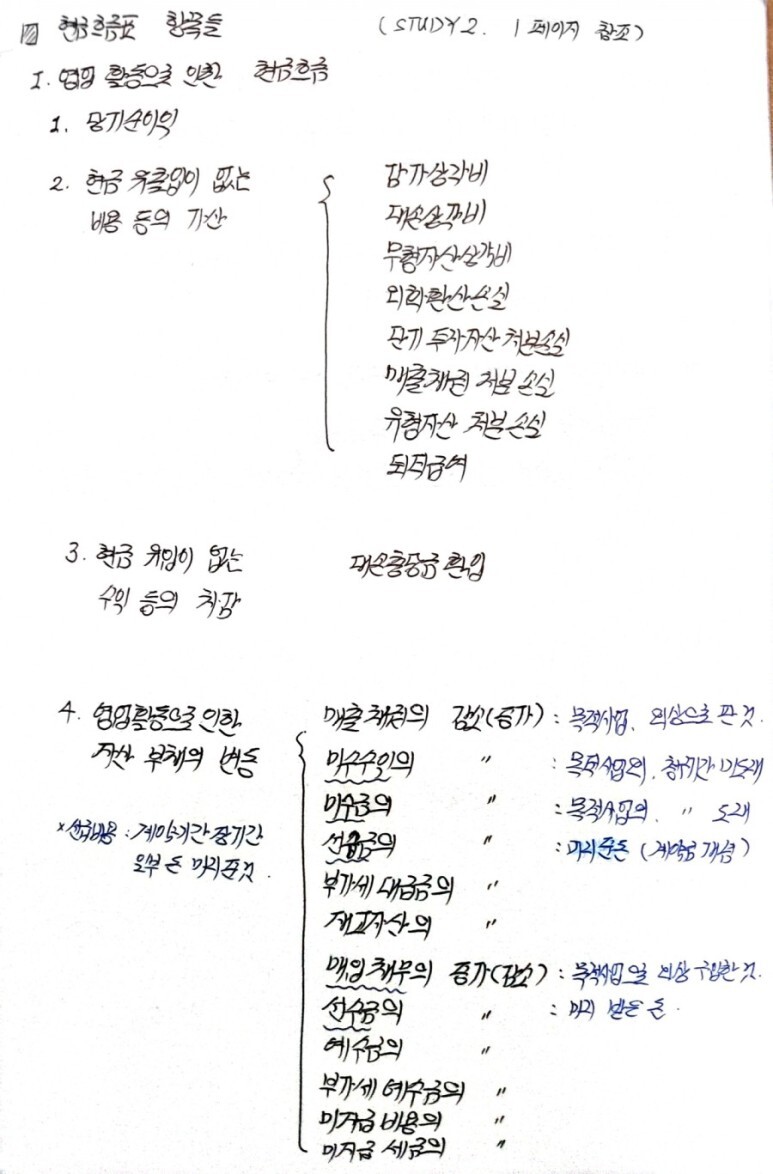 ▨ 현금흐름표 항목들 (STUDY 2. 1 페이지 참조)
I. 영업 활동으로 인한 현금흐름
1. 당기순이익
2. 현금 유출입이 없는
비용 등의 가산
감가상각비
대손상각비
무형자산상각비
외화환산손실
단기 투자자산 처분손실
매출채권 처분 손실
유형자산 처분손실
퇴직급여
3. 현금 유입이 없는
수익 등의 차감
대손충당금 환입
4. 영업활동으로 인한
자산 부채의 변동
*선급비용 : 계약기간 장기간
일부 돈 미리준것.
매출채권의 감소(증가) : 목적사업, 외상으로 판 것.
미수수익의 〃 : 목적사업외, 청구기간 미도래
미수금의 〃 : 목적사업외. 〃 도래
선급금의 〃 : 미리준돈 (계약금 개념)
부가세 대급금의 〃
재고자산의 〃
매입채무의 증가(감소) : 목적사업을 외상 구입한 것.
선수금의 〃 : 미리 받은 돈.
예수금의 〃
부가세 예수금의 〃
미지급 비용의 〃
미지급 세금의 〃